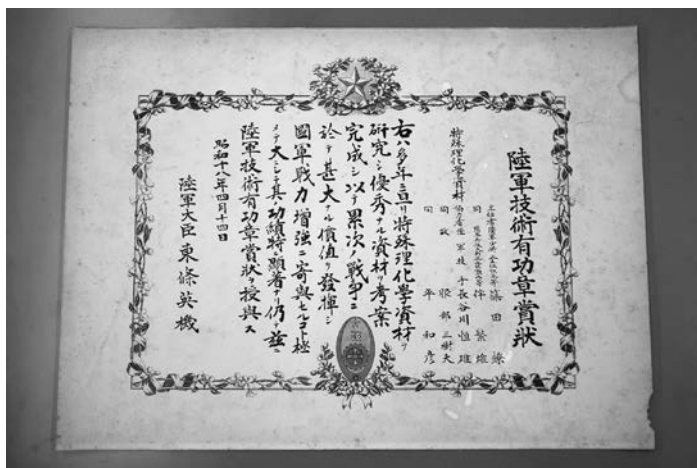 陸軍技術有功章賞狀
篠田鐐
伴繁雄
軍技手長谷川恒雄
服部三樹夫
平和彦
特殊理化學資材
右ハ多年ニ亘リ特殊理化學資材ヲ
硏究シ優秀ナル資材ヲ考案
完成シ以テ累次ノ戰爭ニ
於テ甚大ナル價値ヲ發揮シ
國軍戰力增强ニ寄與セルコト極
メテ大ニシテ其ノ功績特ニ顯著ナリ仍テ玆ニ
陸軍技術有功章賞狀ヲ授與ス
昭和十八年四月十四日
陸軍大臣東條英機